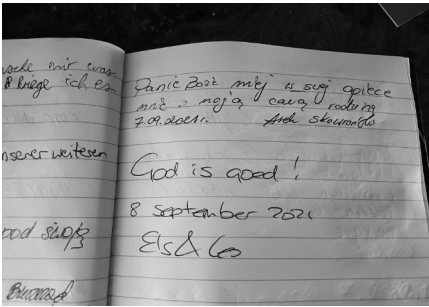 sche mir was
kriege ich es
nserer weiteren
pod swoją
Panie Boże miej w swej opiece
mnie z moją całą rodziną
7.09.2021r.
God is good!
8 september 2021
Els & Co